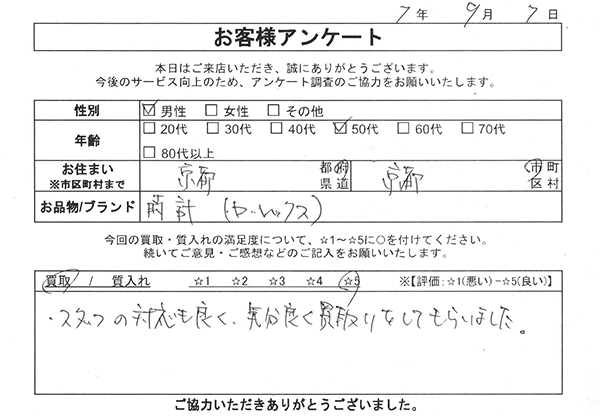 7年 9月 7日
お客様アンケート
本日はご来店いただき、誠にありがとうございます。
今後のサービス向上のため、アンケート調査のご協力をお願いいたします。
性別 ☑男性 □女性 □その他
年齢 □20代 □30代 □40代 ☑50代 □60代 □70代
□80代以上
お住まい 京都 都府 京都 市町
※市区町村まで 県道 区村
お品物/ブランド 時計 (ロレックス)
今回の買取・質入れの満足度について、☆1～☆5に○を付けてください。
続いてご意見・ご感想などのご記入をお願いいたします。
買取 / 質入れ ☆1 ☆2 ☆3 ☆4 ☆5 ※【評価:☆1(悪い)-☆5(良い)】
・スタッフの対応も良く、気分良く買取りをしてもらいました。
ご協力いただきありがとうございました。